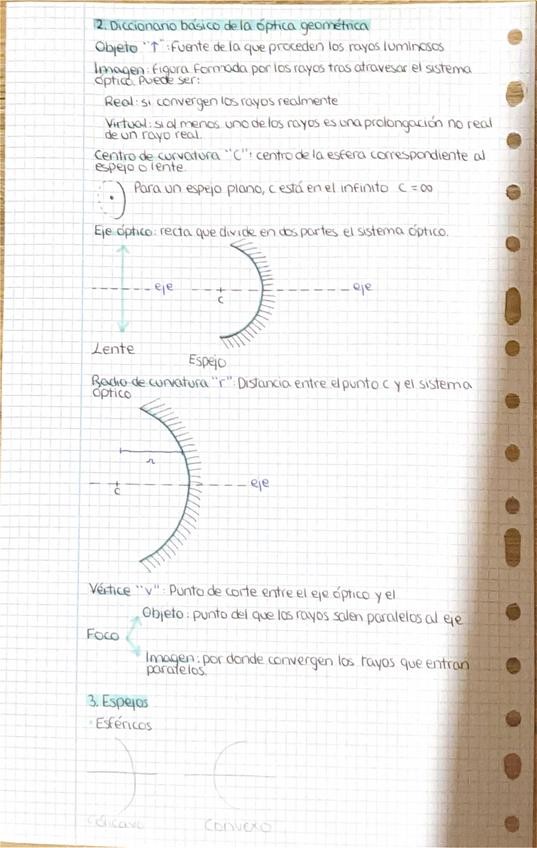 2. Diccionario básico de la óptica geométrica
Objeto "↑": Fuente de la que proceden los rayos luminosos
Imagen: figura formada por los rayos tras atravesar el sistema
óptico. Puede ser:
Real: si convergen los rayos realmente
Virtual: si al menos uno de los rayos es una prolongación no real
de un rayo real.
Centro de curvatura "C": centro de la esfera correspondiente al
espejo o lente.
Para un espejo plano, c está en el infinito C = ∞
Eje óptico: recta que divide en dos partes el sistema óptico.
eje
c
eje
Lente
Espejo
Radio de curvatura "r": Distancia entre el punto C y el sistema
óptico
r
c
eje
Vértice "v": Punto de corte entre el eje óptico y el
Objeto: punto del que los rayos salen paralelos al eje
Foco
Imagen: por donde convergen los rayos que entran
paralelos.
3. Espejos
· Esféricos
Cóncavo
Convexo